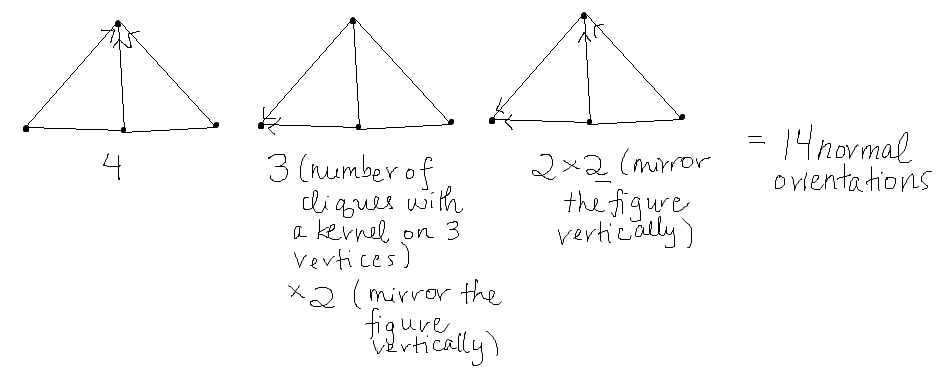 4
3 (number of
cliques with
a kernel on 3
vertices)
× 2 (mirror the
figure
vertically)
2 × 2 (mirror
the figure
vertically)
= 14 normal
orientations